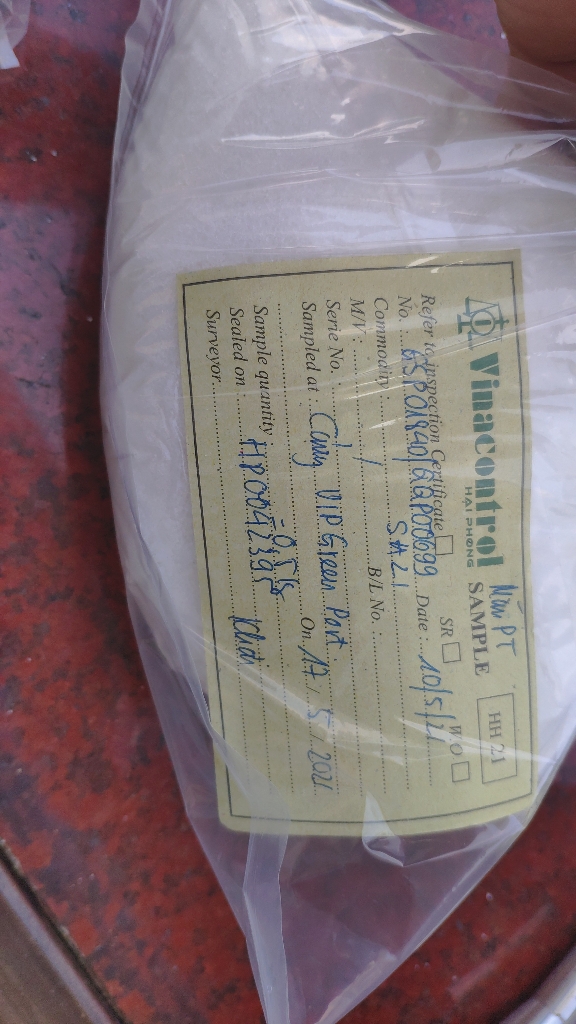 Vinacontrol
HẢI PHÒNG
Mẫu PT
SAMPLE
HH 21
Refer to inspection Certificate SR W/O
No. Date : 10/5/21
Commodity : SA21
M/V : / B/L No. :
Serie No. :
Sampled at : Cảng VIP Green Port On 17 / 5 / 2021
Sample quantity
Sealed on : HP00042395
Surveyor